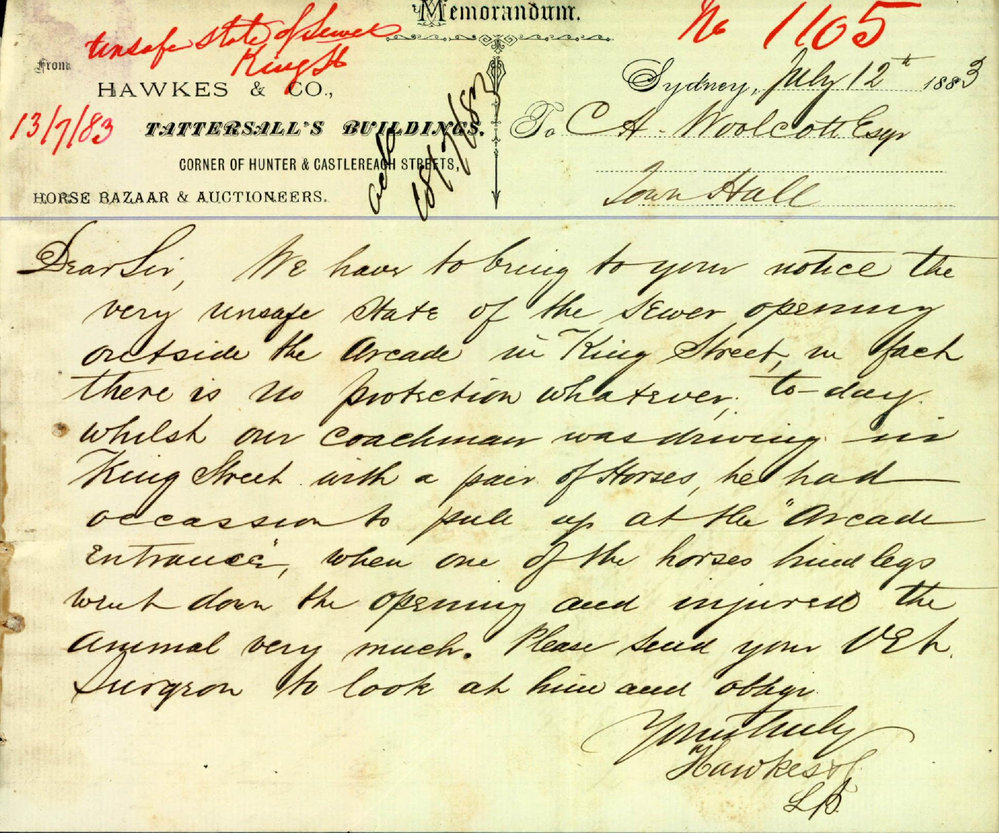 Memorandum.
No 1105
Unsafe state of Sewer
King St
From
HAWKES & CO.,
13/7/83
TATTERSALL'S BUILDINGS.
CORNER OF HUNTER & CASTLEREAGH STREETS,
HORSE BAZAAR & AUCTIONEERS.
18/7/83
Sydney, July 12th 1883
To C H. Woolcott Esqr
Town Hall
Dear Sir, We have to bring to your notice the
very unsafe state of the sewer opening
outside the Arcade in King Street, in fact
there is no protection whatever, to-day
whilst our coachman was driving in
King Street with a pair of Horses, he had
occassion to pull up at the "Arcade
Entrance", when one of the horses hind legs
went down the opening and injured the
animal very much. Please send your Vet.
Surgeon to look at him and oblige
Yours truly
Hawkes & Co